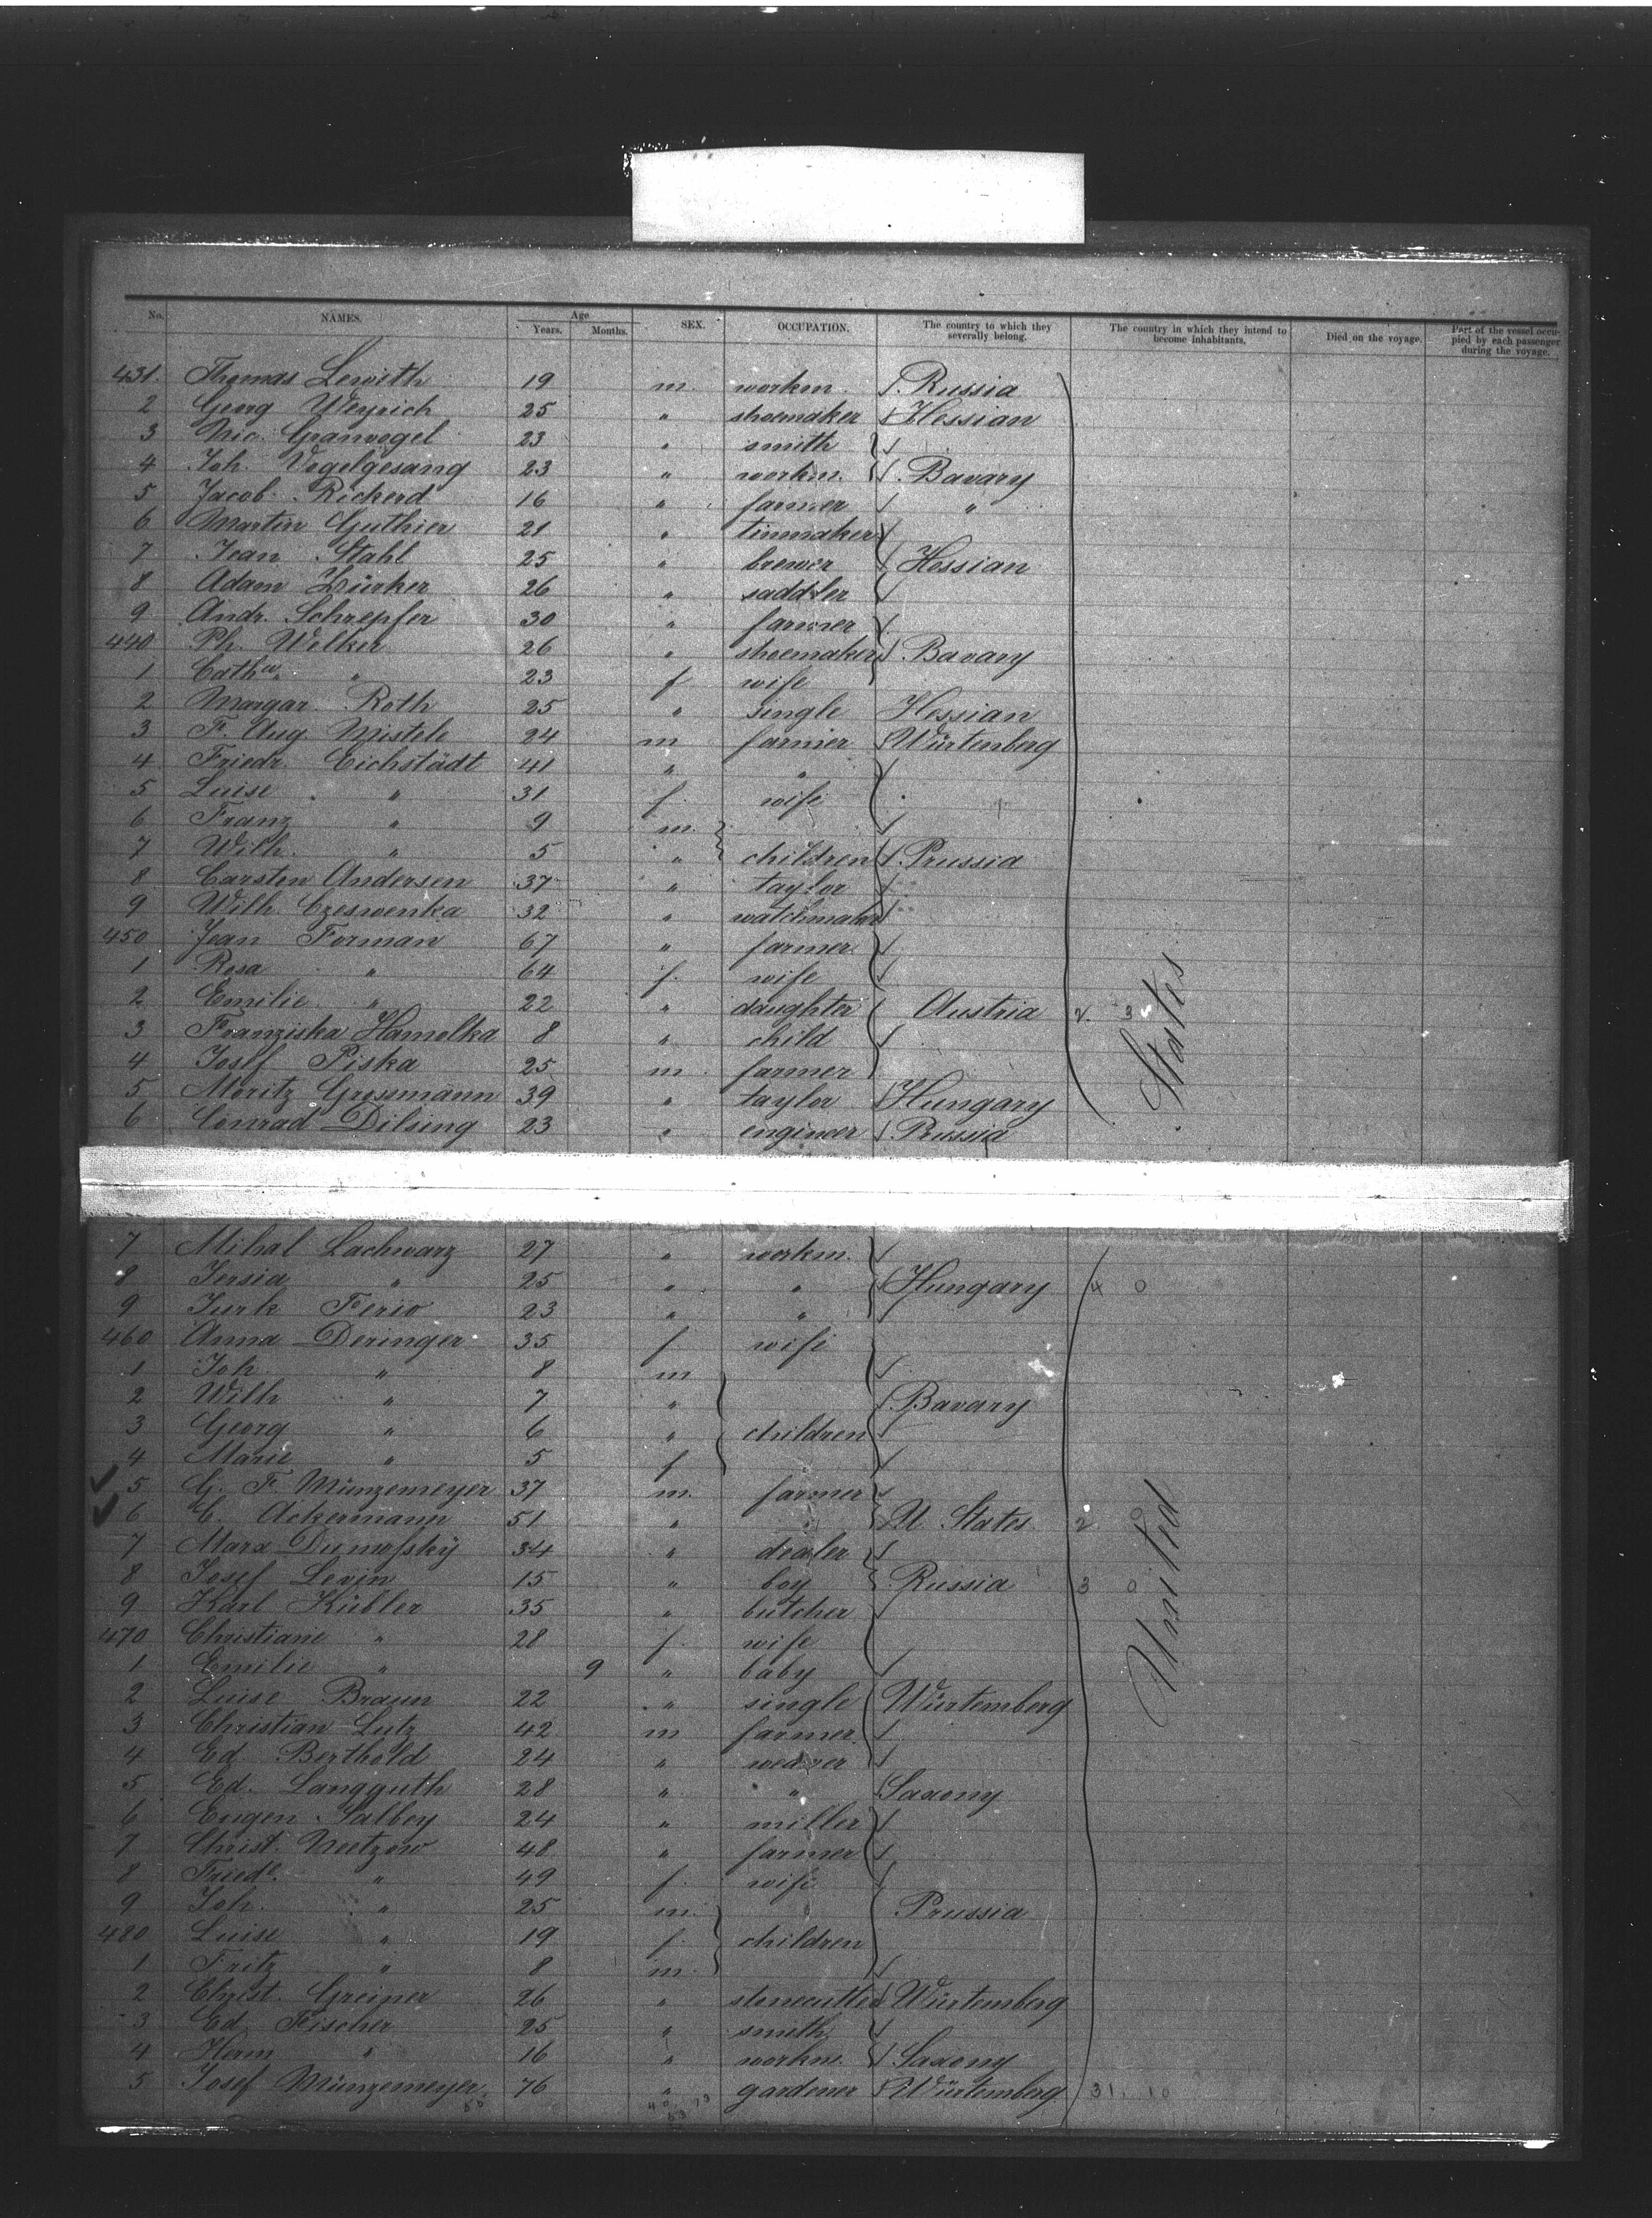 No. NAMES. Age Years. Months. SEX. OCCUPATION. The country to which they severally belong. The country in which they intend to become inhabitants. Died on the voyage. Part of the vessel occupied by each passenger during the voyage.
431. Thomas Lewith 19 m. workm. Russia
2 Georg Weyrich 25 " shoemaker Hessian
3 Nic. Granvogel 23 " smith
4 Joh. Vogelgesang 23 " workm. Bavary
5 Jacob Rickerd 16 " farmer "
6 Martin Guthier 21 " tinmaker
7 Jean Stahl 25 " brewer Hessian
8 Adam Zürker 26 " saddler
9 Andr. Schrepfer 30 " farmer
440 Ph. Welker 26 " shoemaker Bavary
1 Catha. " 23 f wife
2 Margar. Roth 25 " single Hessian
3 F. Aug. Mistele 24 m farmer Würtenberg
4 Friedr. Eichstädt 41 " "
5 Luise " 31 f. wife
6 Franz " 9 m.
7 Wilh. " 5 " children Prussia
8 Carsten Andersen 37 " taylor
9 Wilh. Czeswenka 32 " watchmaker
450 Jean Forman 67 " farmer
1 Rosa " 64 f. wife
2 Emilie " 22 " daughter Austria
3 Franziska Hamelka 8 " child
4 Josef Piska 25 m. farmer
5 Moritz Grossmann 39 " taylor Hungary
6 Conrad Dilsing 23 " engineer Prussia
7 Mihal Lachwarz 27 " workm.
8 Jersia " 25 " " Hungary 4 0
9 Jurk Ferio 23 " "
460 Anna Deringer 35 f wife
1 Joh. " 8 m
2 Wilh " 7 " Bavary
3 Georg " 6 " children
4 Marie " 5 f
5 G. F. Münzemeyer 37 m. farmer
6 C. Ackermann 51 " " U. States 2 0
7 Marx Dumofsky 34 " dealer
8 Josef Levin 15 " boy Russia 3 0
9 Karl Kübler 35 " butcher
470 Christiane " 28 f. wife
1 Emilie " 9 " baby
2 Luise Braun 22 " single Würtemberg
3 Christian Lutz 42 m farmer
4 Ed. Berthold 24 " weaver
5 Ed. Langguth 28 " " Saxony
6 Eugen Salbey 24 " miller
7 Christ. Neetzow 48 " farmer
8 Friede. " 49 f. wife
9 Joh. " 25 m. Prussia
480 Luise " 19 f. children
1 Fritz " 8 m.
2 Christ. Greiner 26 " stonecutter Würtemberg
3 Ed. Fischer 25 " smith
4 Herm " 16 " workm. Saxony
5 Josef Münzemeyer 76 " gardener Würtemberg 31. 10
United States